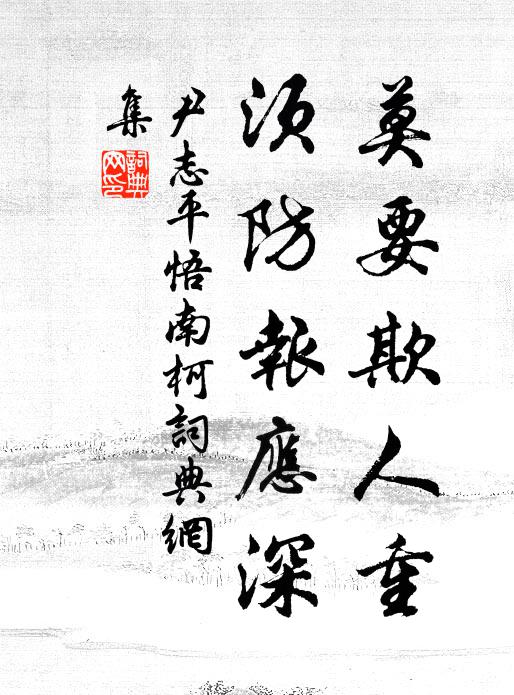 莫要欺人重
須防報應深
尹志平悟南柯詞典網
集
詞典网印